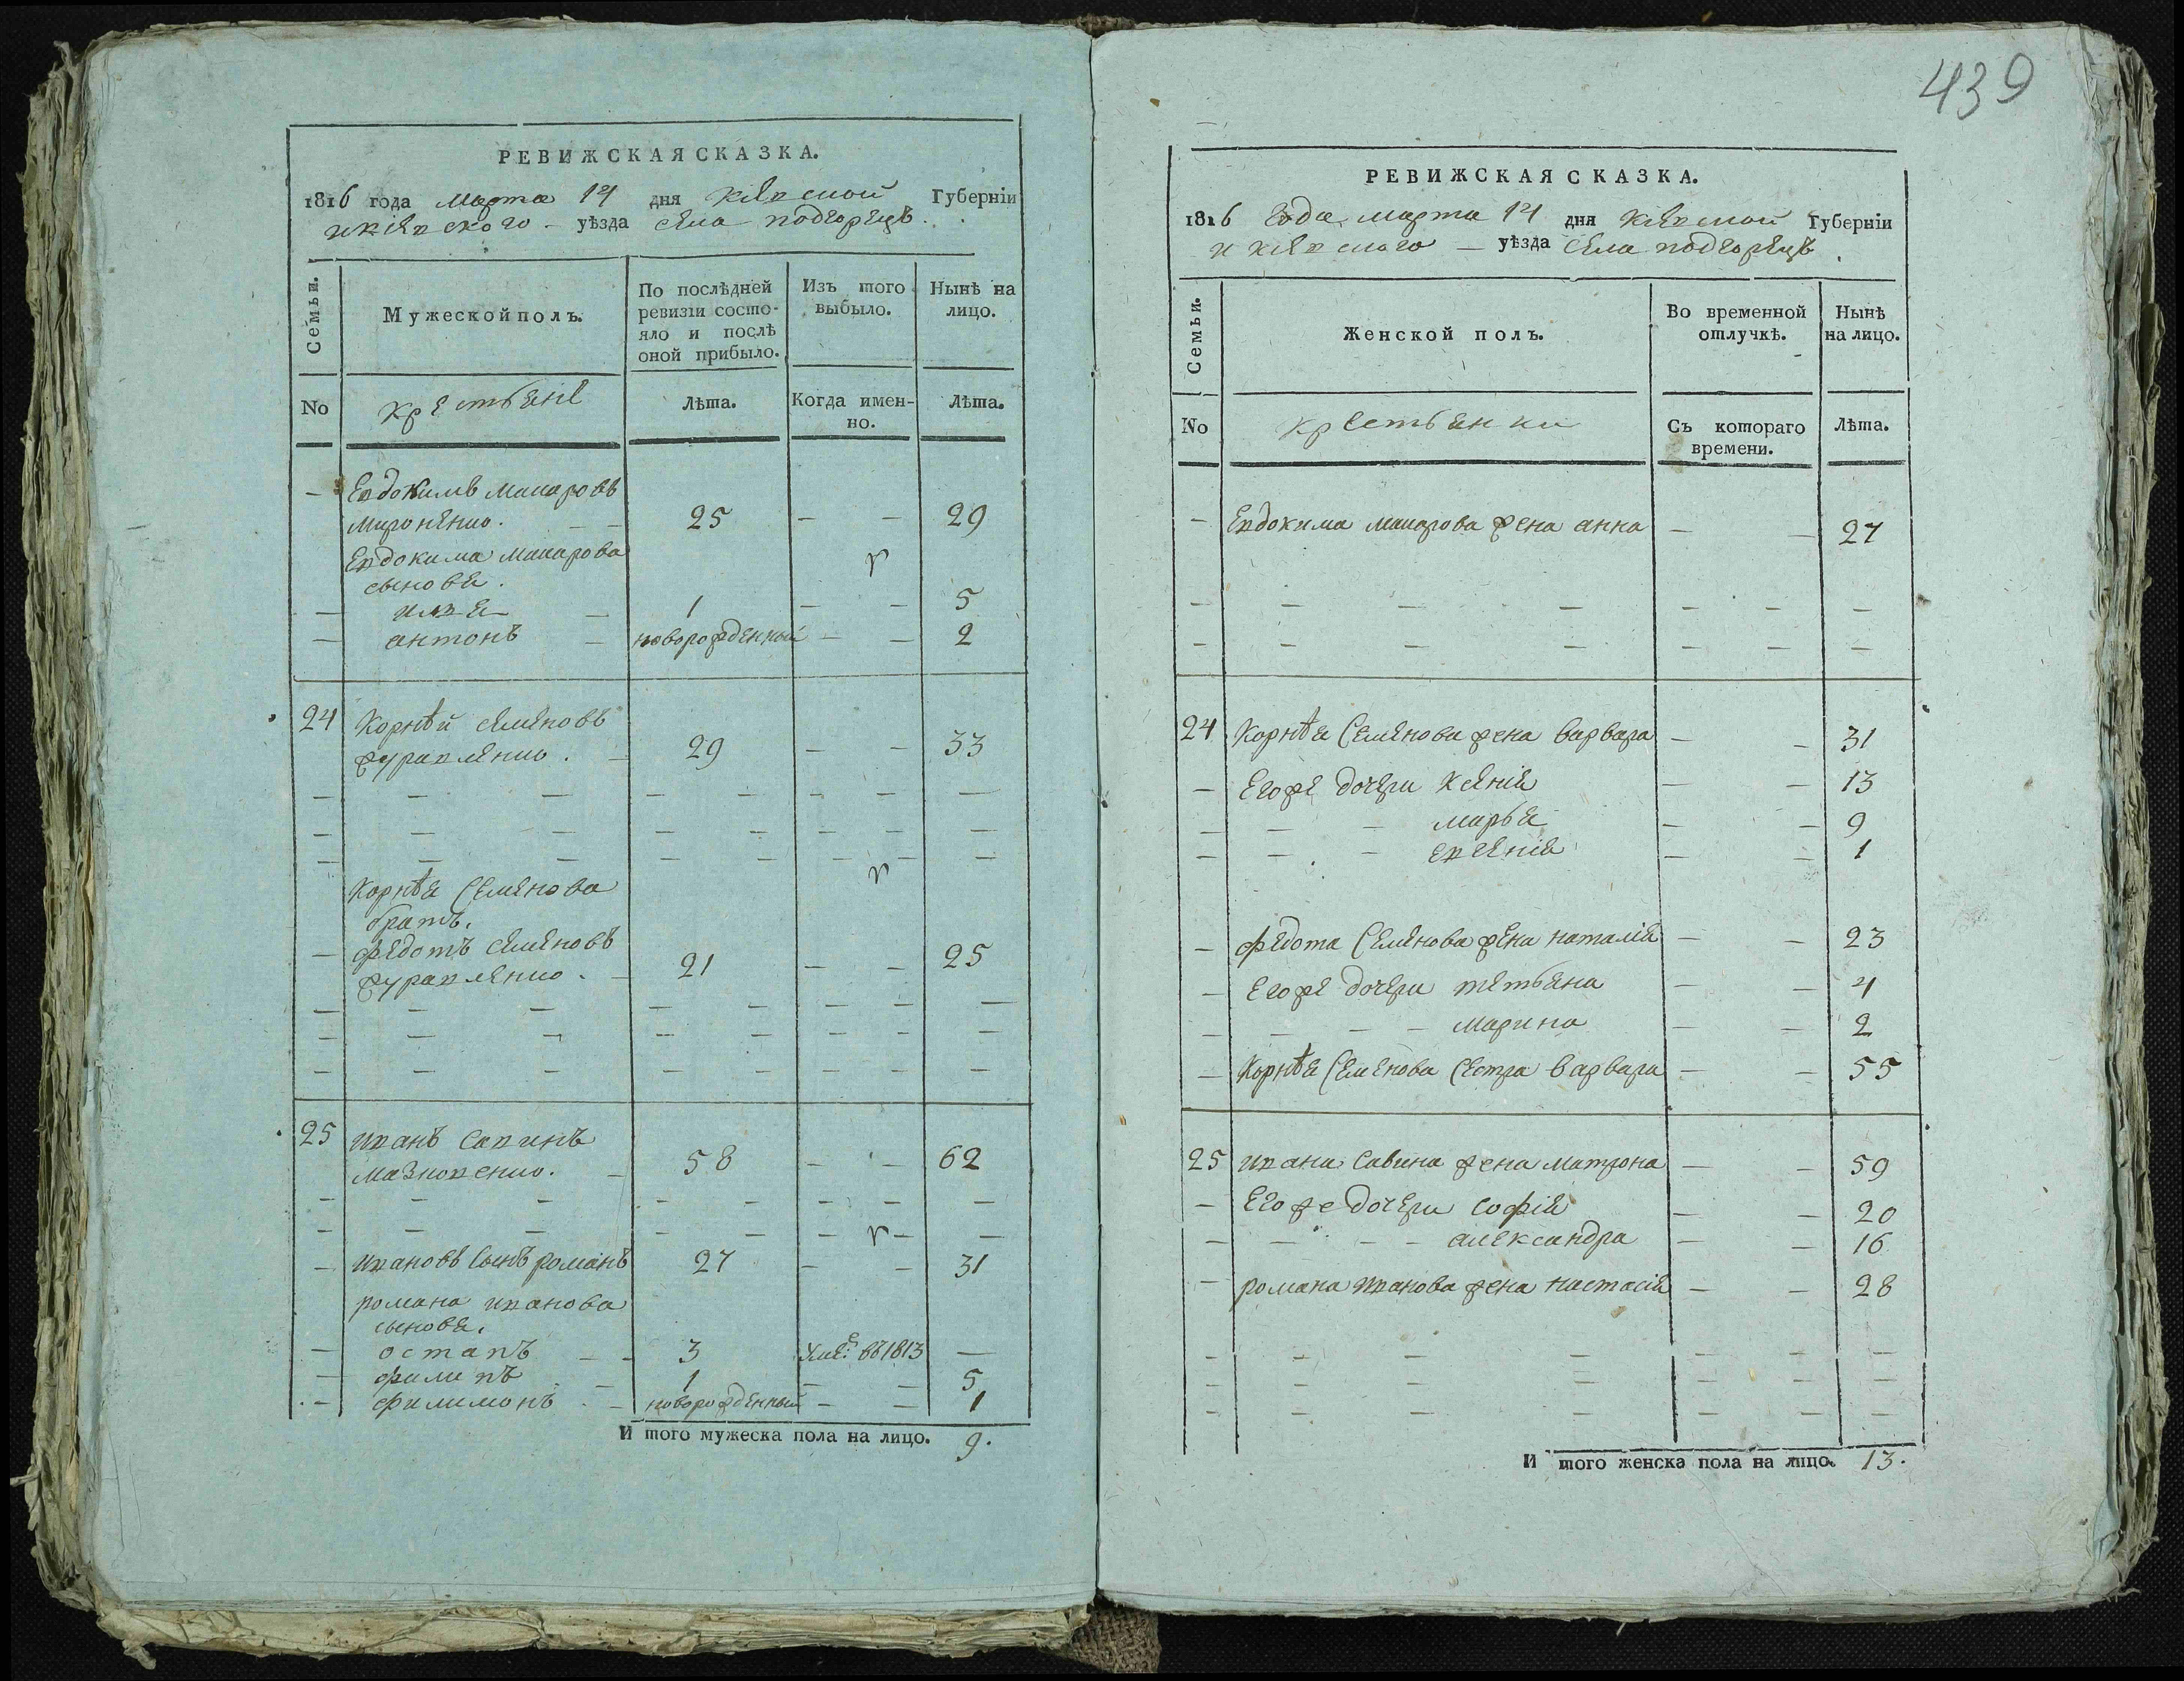 439
РЕВИЖСКАЯ СКАЗКА.
1816 года марта 14 дня Кіевской Губерніи
и кіевского — уѣзда села подгорецъ.
Семьи.
Мужеской полъ.
По послѣдней
ревизіи состо-
яло и послѣ
оной прибыло.
Изъ того
выбыло.
Нынѣ на
лицо.
No
крестьяне
Лѣта.
Когда имен-
но.
Лѣта.
— Евдокимъ макаровъ
мироненко. — — 25 — — 29
Евдокима макарова
сыновя.
— илья — 1 — — 5
— антонъ — новорожденный — — 2
24 Корнѣй семеновъ
журавленко. — 29 — — 33
Корнѣя Семенова
братъ.
— федотъ семеновъ
журавленко. — 21 — — 25
25 иванъ Савинъ
мазновенко. — 58 — — 62
— ивановъ сынъ романъ 27 — — 31
романа иванова
сыновя.
— остапъ — — 3 уме: въ 1813 —
— филипъ — 1 — — 5
— филимонъ — новорожденный — — 1
И того мужеска пола на лицо. 9.
РЕВИЖСКАЯ СКАЗКА.
1816 года марта 14 дня Кіевской Губерніи
и кіевского — уѣзда села подгорецъ.
Семьи.
Женской полъ.
Во временной
отлучкѣ.
Нынѣ
на лицо.
No
крестьянки
Съ котораго
времени.
Лѣта.
— Евдокима макарова жена анна — — 27
24 Корнѣя Семенова жена варвара — — 31
— Егоже дочери Ксенія — — 13
— — — марья — — 9
— — — евсенія — — 1
— федота Семенова жена наталія — — 23
— Егоже дочери тетьяна — — 4
— — — — марина — — 2
— Корнѣя Семенова Сестра варвара — — 55
25 ивана Савина жена матрона — — 59
— Егоже дочери софія — — 20
— — — — александра — — 16
— романа иванова жена настасія — — 28
И того женска пола на лицо. 13.